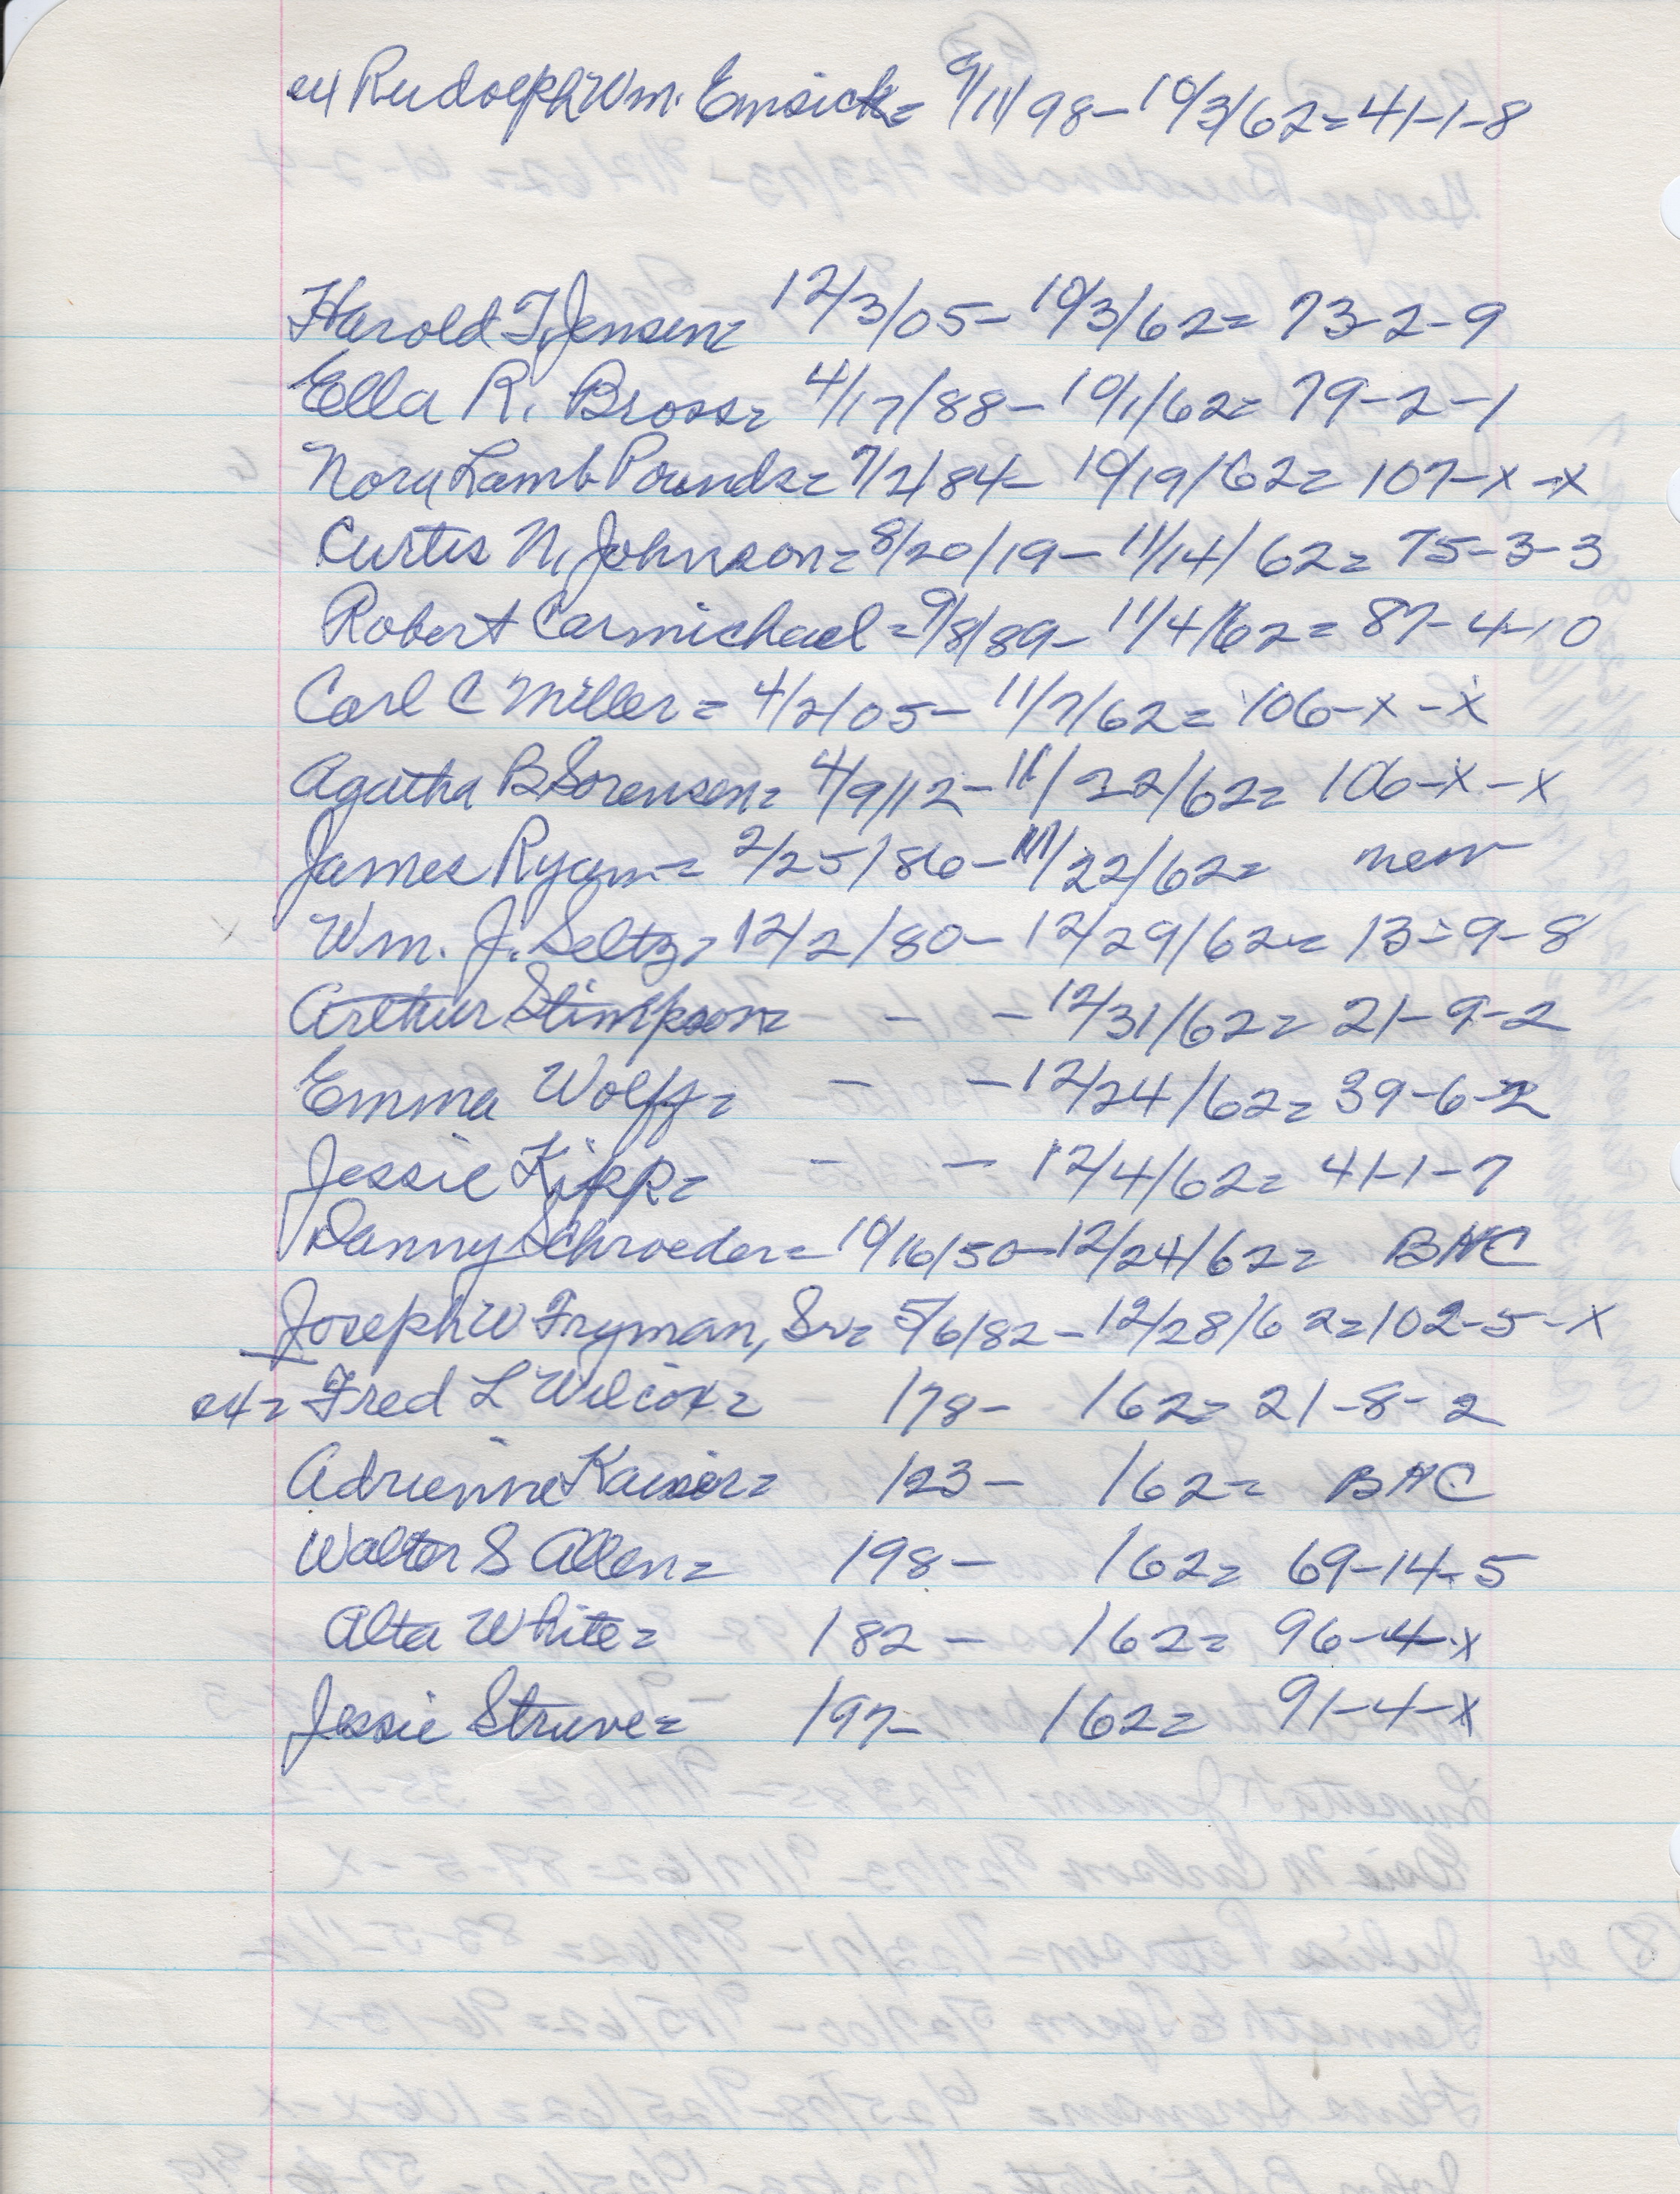 ex Rudolph Wm. Emsick = 9/11/98 - 10/3/62 = 41-1-8
Harold T. Jensen = 12/3/05 - 10/3/62 = 73-2-9
Ella R. Bross = 4/17/88 - 10/1/62 = 79-2-1
Nora Lamb Pounds = 7/2/84 - 10/19/62 = 107-x-x
Curtis N. Johnson = 8/20/19 - 11/14/62 = 75-3-3
Robert Carmichael = 9/8/89 - 11/4/62 = 87-4-10
Carl C Miller = 4/2/05 - 11/7/62 = 106-x-x
Agatha B Sorensen = 4/9/12 - 11/22/62 = 106-x-x
James Ryan = 2/25/86 - 11/22/62 = new
Wm. J. Seltz = 12/2/80 - 12/29/62 = 13-9-8
Arthur Stimpson = - - 12/31/62 = 21-9-2
Emma Wolff = - - 12/24/62 = 39-6-2
Jessie Kipp = - - 12/4/62 = 41-1-7
Danny Schroeder = 10/16/50 - 12/24/62 = BHC
Joseph W Fryman, Sr = 5/6/82 - 12/28/62 = 102-5-x
ex = Fred L Wilcox = /78 - /62 = 21-8-2
Adrienne Kaiser = /23 - /62 = BHC
Walter S Allen = /98 - /62 = 69-14-5
Alta White = /82 - /62 = 96-4-x
Jessie Struve = /97 - /62 = 91-4-x